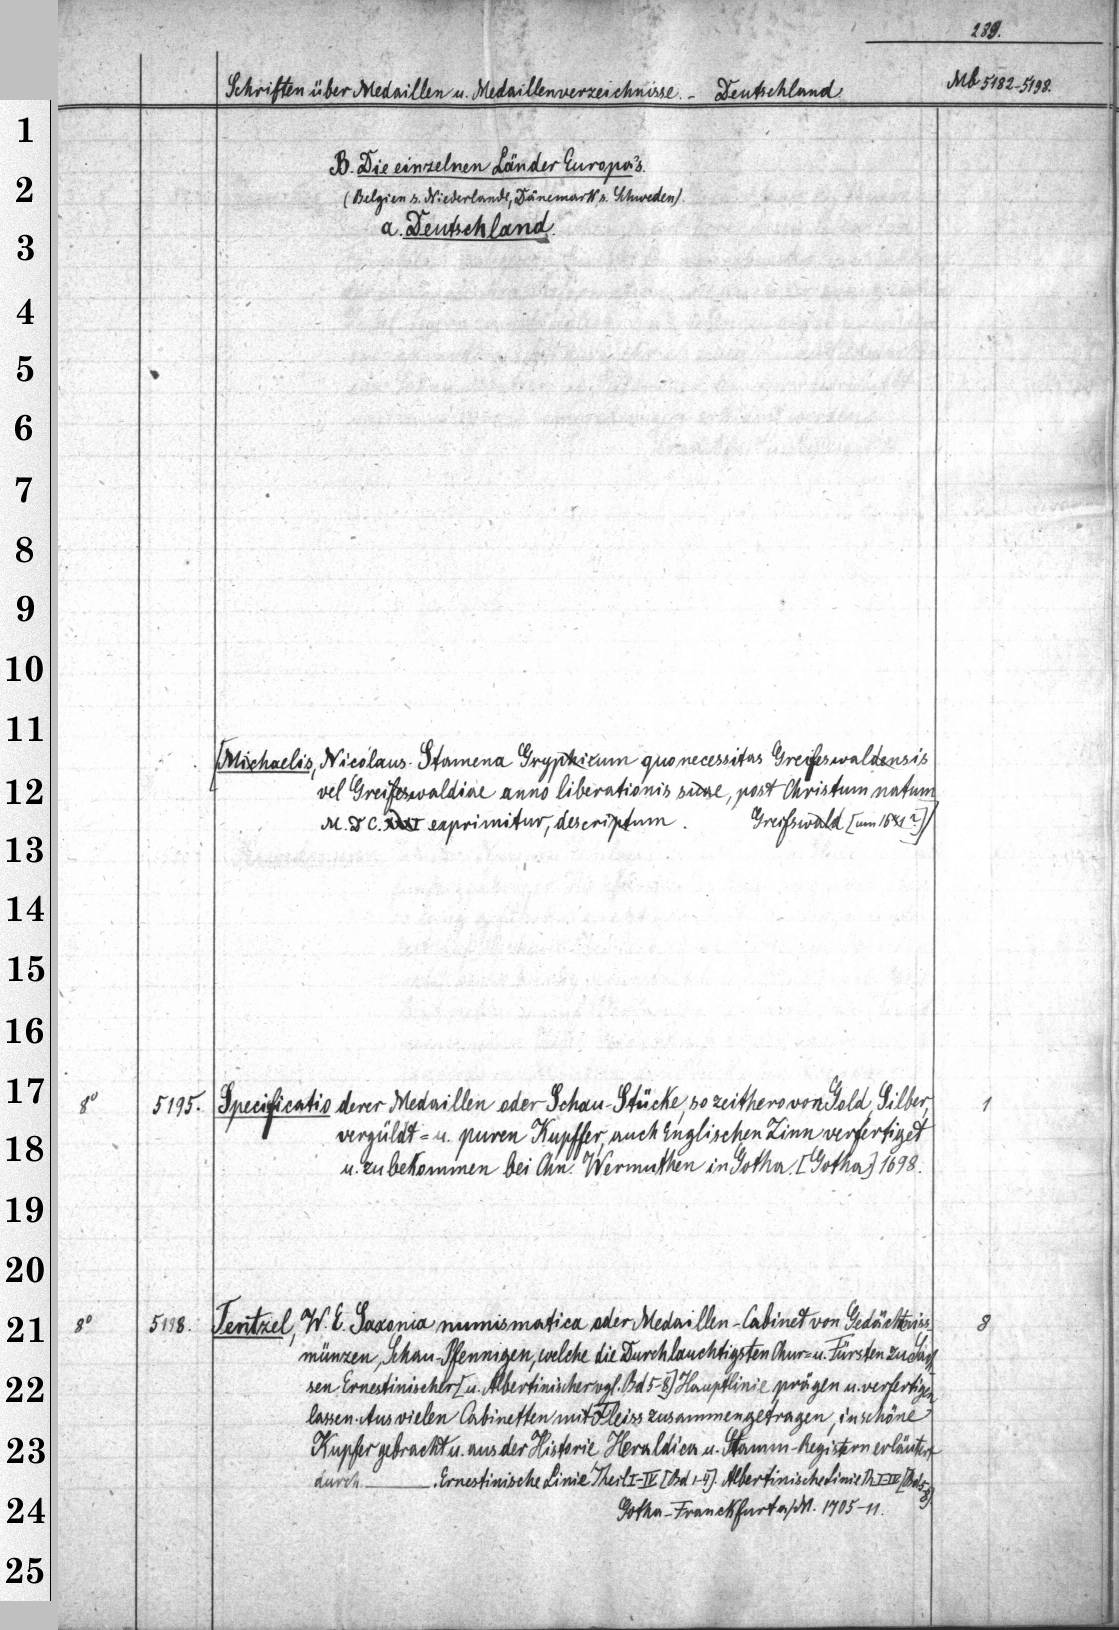 289.
Schriften über Medaillen u. Medaillenverzeichnisse. - Deutschland. Mb 5182-5198.
B. Die einzelnen Länder Europa's.
(Belgien s. Niederlande, Dänemark s. Schweden).
a. Deutschland.
[Michaelis, Nicolaus. Stamena Gryphicum quo necessitas Greifeswaldensis
vel Greifeswaldiae anno liberationis suae, post Christum natum
M.D C. exprimitur, descriptum. Greifswald [um 1631?]]
8° 5195. Specificatio derer Medaillen oder Schau-Stücke, so zeithero von Gold, Silber, 1
vergüldt= u. puren Kupffer, auch Englischen Zinn verfertiget
u. zu bekommen bei Chn. Wermuthen in Gotha. [Gotha] 1698.
8° 5198. Tentzel, W. E. Saxonia numismatica oder Medaillen-Cabinet von Gedächtniss 8
münzen, Schau-Pfennigen, welche die Durchlauchtigsten Chur= u. Fürsten zu Sach
sen Ernestinischer [u. Albertinischer vgl. Bd 5-8] Hauptlinie prägen u. verfertigen
lassen. Aus vielen Cabinetten mit Fleiss zusammengetragen, in schöne
Kupfer gebracht u. aus der Historie, Heraldica u. Stamm-Registern erläutert
durch ______. Ernestinische Linie Theil I-IV [Bd 1-4]. Albertinische Linie Th. I-IV [Bd 5-8].
Gotha-Franckfurt a/M. 1705-11.
1
2
3
4
5
6
7
8
9
10
11
12
13
14
15
16
17
18
19
20
21
22
23
24
25